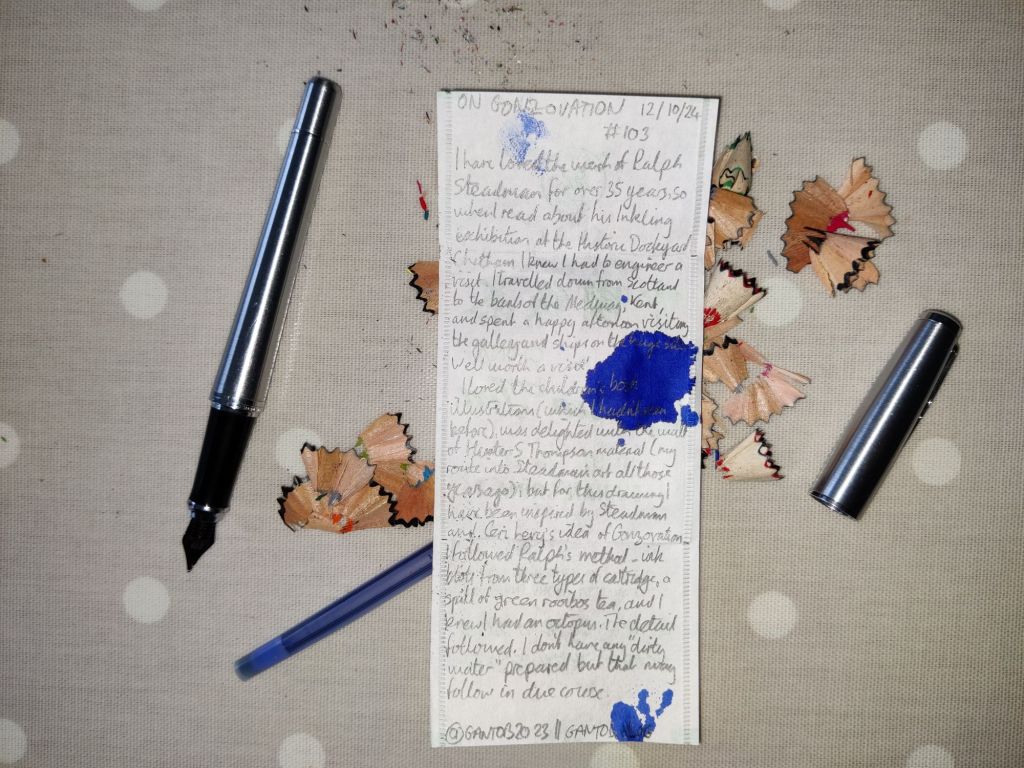 ON GONZOVATION 12/10/24
#103
I have loved the work of Ralph
Steadman for over 35 years, so
when I read about his Inkling
exhibition at the Historic Dockyard
Chatham I knew I had to engineer a
visit. I travelled down from Scotland
to the banks of the Medway, Kent,
and spent a happy afternoon visiting
the gallery and ships on the huge
Well worth a visit!
I loved the children's book
illustrations (which I hadn't seen
before), was delighted with the wall
of Hunter S Thompson material (my
route into Steadman's art all those
years ago), but for this drawing I
have been inspired by Steadman
and Ceri Levy's idea of Gonzovation.
I followed Ralph's method - ink
blots from three types of cartridge, a
spill of green rooibos tea, and I
knew I had an octopus. The detail
followed. I don't have any "dirty
water" prepared but that may
follow in due course.
@GANTOB2023 || GANTOB BLOG